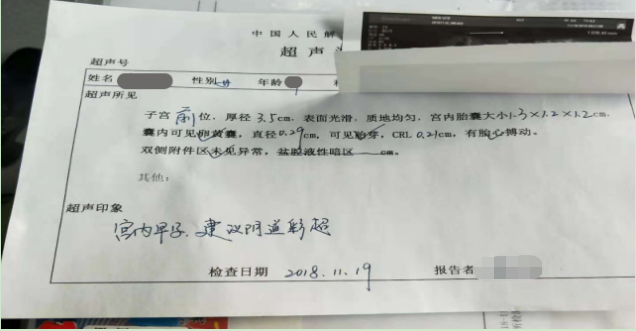 中国人民解
超声
超声号
姓名 性别 女 年龄
超声所见
子宫前位．厚径3.5cm．表面光滑．质地均匀．宫内胎囊大小1.3×1.2×1.2cm．
囊内可见卵黄囊，直径0.29cm，可见胎芽，CRL 0.21cm，有胎心搏动。
双侧附件区未见异常，盆腔液性暗区——cm。
其他：
超声印象
宫内早孕．建议阴道彩超
检查日期 2018.11.19 报告者